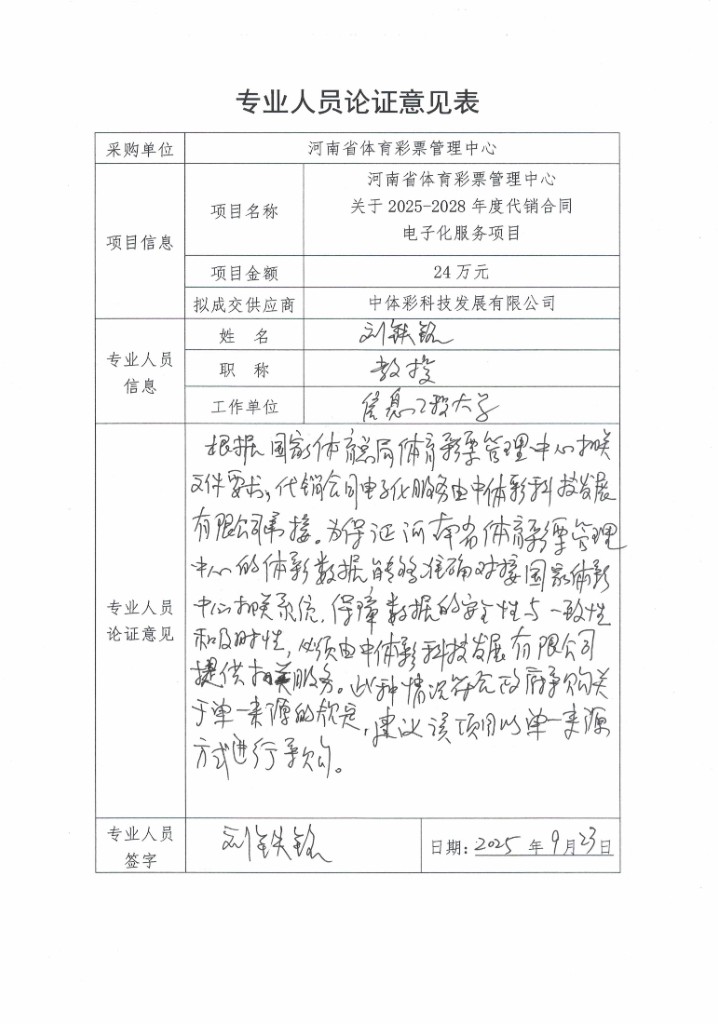 专业人员论证意见表
采购单位 河南省体育彩票管理中心
项目信息
项目名称
河南省体育彩票管理中心
关于 2025-2028 年度代销合同
电子化服务项目
项目金额 24 万元
拟成交供应商 中体彩科技发展有限公司
专业人员
信息
姓 名 刘铁铭
职 称 教授
工作单位 信息工程大学
专业人员
论证意见
根据国家体育总局体育彩票管理中心相关
文件要求,代销合同电子化服务由中体彩科技发展
有限公司承接。为保证河南省体育彩票管理
中心的体彩数据能够准确对接国家体彩
中心相关系统,保障数据的安全性与一致性
和及时性,必须由中体彩科技发展有限公司
提供相关服务。此种情况符合政府采购关
于单一来源的规定,建议该项目以单一来源
方式进行采购。
专业人员
签字
刘铁铭
日期:2025 年 9月23日